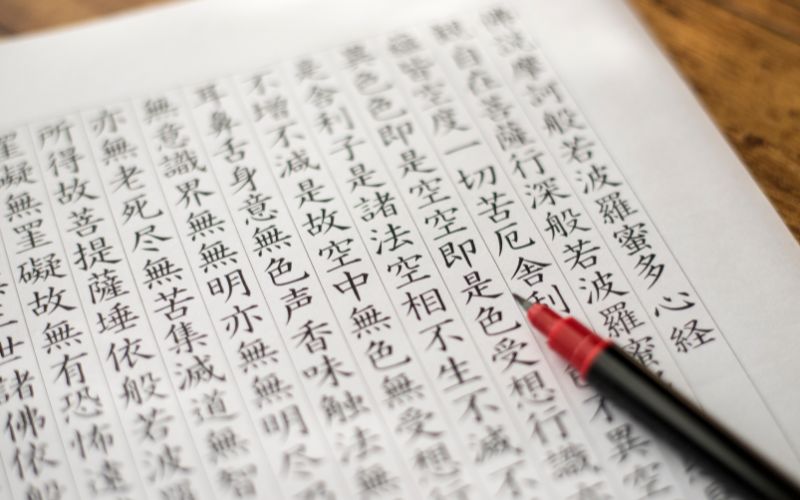 佛説摩訶般若波羅蜜多心経
観自在菩薩行深般若波羅蜜
蘊皆空度一切苦厄舎利不異空
異色色即是空空即是色受想行識
是舎利子是諸法空相不生不滅不
不増不減是故空中無色無受想
耳鼻舌身意無色声香味触法無
無意識界無無明亦無無明尽
亦無老死尽無苦集滅道無智
所得故菩提薩埵依般若波羅
罣礙無罣礙故無有恐怖遠
世諸佛依般